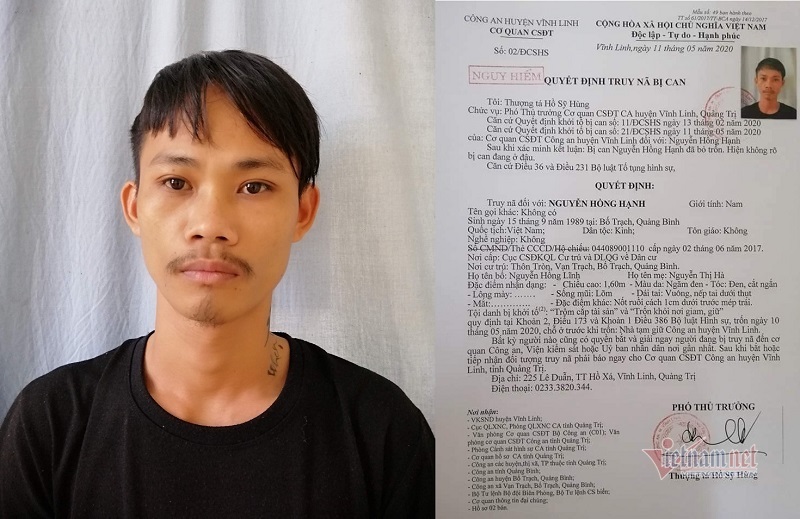 Mẫu số: 49 ban hành theo
TT số 61/2017/TT-BCA ngày 14/12/2017
CÔNG AN HUYỆN VĨNH LINH
CƠ QUAN CSĐT
CỘNG HÒA XÃ HỘI CHỦ NGHĨA VIỆT NAM
Độc lập - Tự do - Hạnh phúc
Số: 02/ĐCSHS
Vĩnh Linh, ngày 11 tháng 05 năm 2020
NGUY HIỂM
QUYẾT ĐỊNH TRUY NÃ BỊ CAN
Tôi: Thượng tá Hồ Sỹ Hùng
Chức vụ: Phó Thủ trưởng Cơ quan CSĐT CA huyện Vĩnh Linh, Quảng Trị
Căn cứ Quyết định khởi tố bị can số: 11/ĐCSHS ngày 13 tháng 02 năm 2020
Căn cứ Quyết định khởi tố bị can số: 21/ĐCSHS ngày 11 tháng 05 năm 2020
của: Cơ quan CSĐT Công an huyện Vĩnh Linh đối với: Nguyễn Hồng Hạnh
Sau khi xác minh kết luận: Bị can Nguyễn Hồng Hạnh đã bỏ trốn. Hiện không rõ
bị can đang ở đâu.
Căn cứ Điều 36 và Điều 231 Bộ luật Tố tụng hình sự,
QUYẾT ĐỊNH:
Truy nã đối với: NGUYỄN HỒNG HẠNH Giới tính: Nam
Tên gọi khác: Không có
Sinh ngày 15 tháng 9 năm 1989 tại: Bố Trạch, Quảng Bình
Quốc tịch:Việt Nam; Dân tộc: Kinh; Tôn giáo: Không
Nghề nghiệp: Không
Số CMND/Thẻ CCCD/Hộ chiếu: 044089001110 cấp ngày 02 tháng 06 năm 2017.
Nơi cấp: Cục CSĐKQL Cư trú và DLQG về Dân cư
Nơi cư trú: Thôn Tròn, Vạn Trạch, Bố Trạch, Quảng Bình.
Họ tên bố: Nguyễn Hồng Lĩnh Họ tên mẹ: Nguyễn Thị Hà
Đặc điểm nhận dạng: - Chiều cao: 1,60m - Màu da: Ngăm đen - Tóc: Đen, cắt ngắn
- Lông mày: ....... - Sống mũi: Lõm - Dái tai: Vuông, nếp tai dưới thụt
- Mắt:................ - Đặc điểm khác: Nốt ruồi cách 1cm dưới trước mép trái.
Tội danh bị khởi tố(2): “Trộm cắp tài sản” và “Trốn khỏi nơi giam, giữ”
quy định tại Khoản 2, Điều 173 và Khoản 1 Điều 386 Bộ luật Hình sự, trốn ngày 10
tháng 05 năm 2020, chỗ ở trước khi trốn: Nhà tạm giữ Công an huyện Vĩnh Linh.
Bất kỳ người nào cũng có quyền bắt và giải ngay người đang bị truy nã đến cơ
quan Công an, Viện kiểm sát hoặc Uỷ ban nhân dân nơi gần nhất. Sau khi bắt hoặc
tiếp nhận đối tượng truy nã phải báo ngay cho Cơ quan CSĐT Công an huyện Vĩnh
Linh, tỉnh Quảng Trị.
Địa chỉ: 225 Lê Duẩn, TT Hồ Xá, Vĩnh Linh, Quảng Trị
Điện thoại: 0233.3820.344.
Nơi nhận:
- VKSND huyện Vĩnh Linh;
- Cục QLXNC, Phòng QLXNC CA tỉnh Quảng Trị;
- Văn phòng Cơ quan CSĐT Bộ Công an (C01); Văn
phòng cơ quan CSĐT Công an tỉnh Quảng Trị;
- Phòng Cảnh sát hình sự CA tỉnh Quảng Trị;
- Cơ quan hồ sơ CA tỉnh Quảng Trị;
- Công an các huyện,thị xã, TP thuộc tỉnh Quảng Trị;
- Công an tỉnh Quảng Bình;
- Công an huyện Bố Trạch, Quảng Bình;
- Công an xã Vạn Trạch, Bố Trạch, Quảng Bình;
- Bộ Tư lệnh Bộ đội Biên Phòng, Bộ Tư lệnh CS biển;
- Cơ quan thông tin đại chúng;
- Hồ sơ 02 bản.
PHÓ THỦ TRƯỞNG
Vietnamnet
Thượng tá Hồ Sỹ Hùng